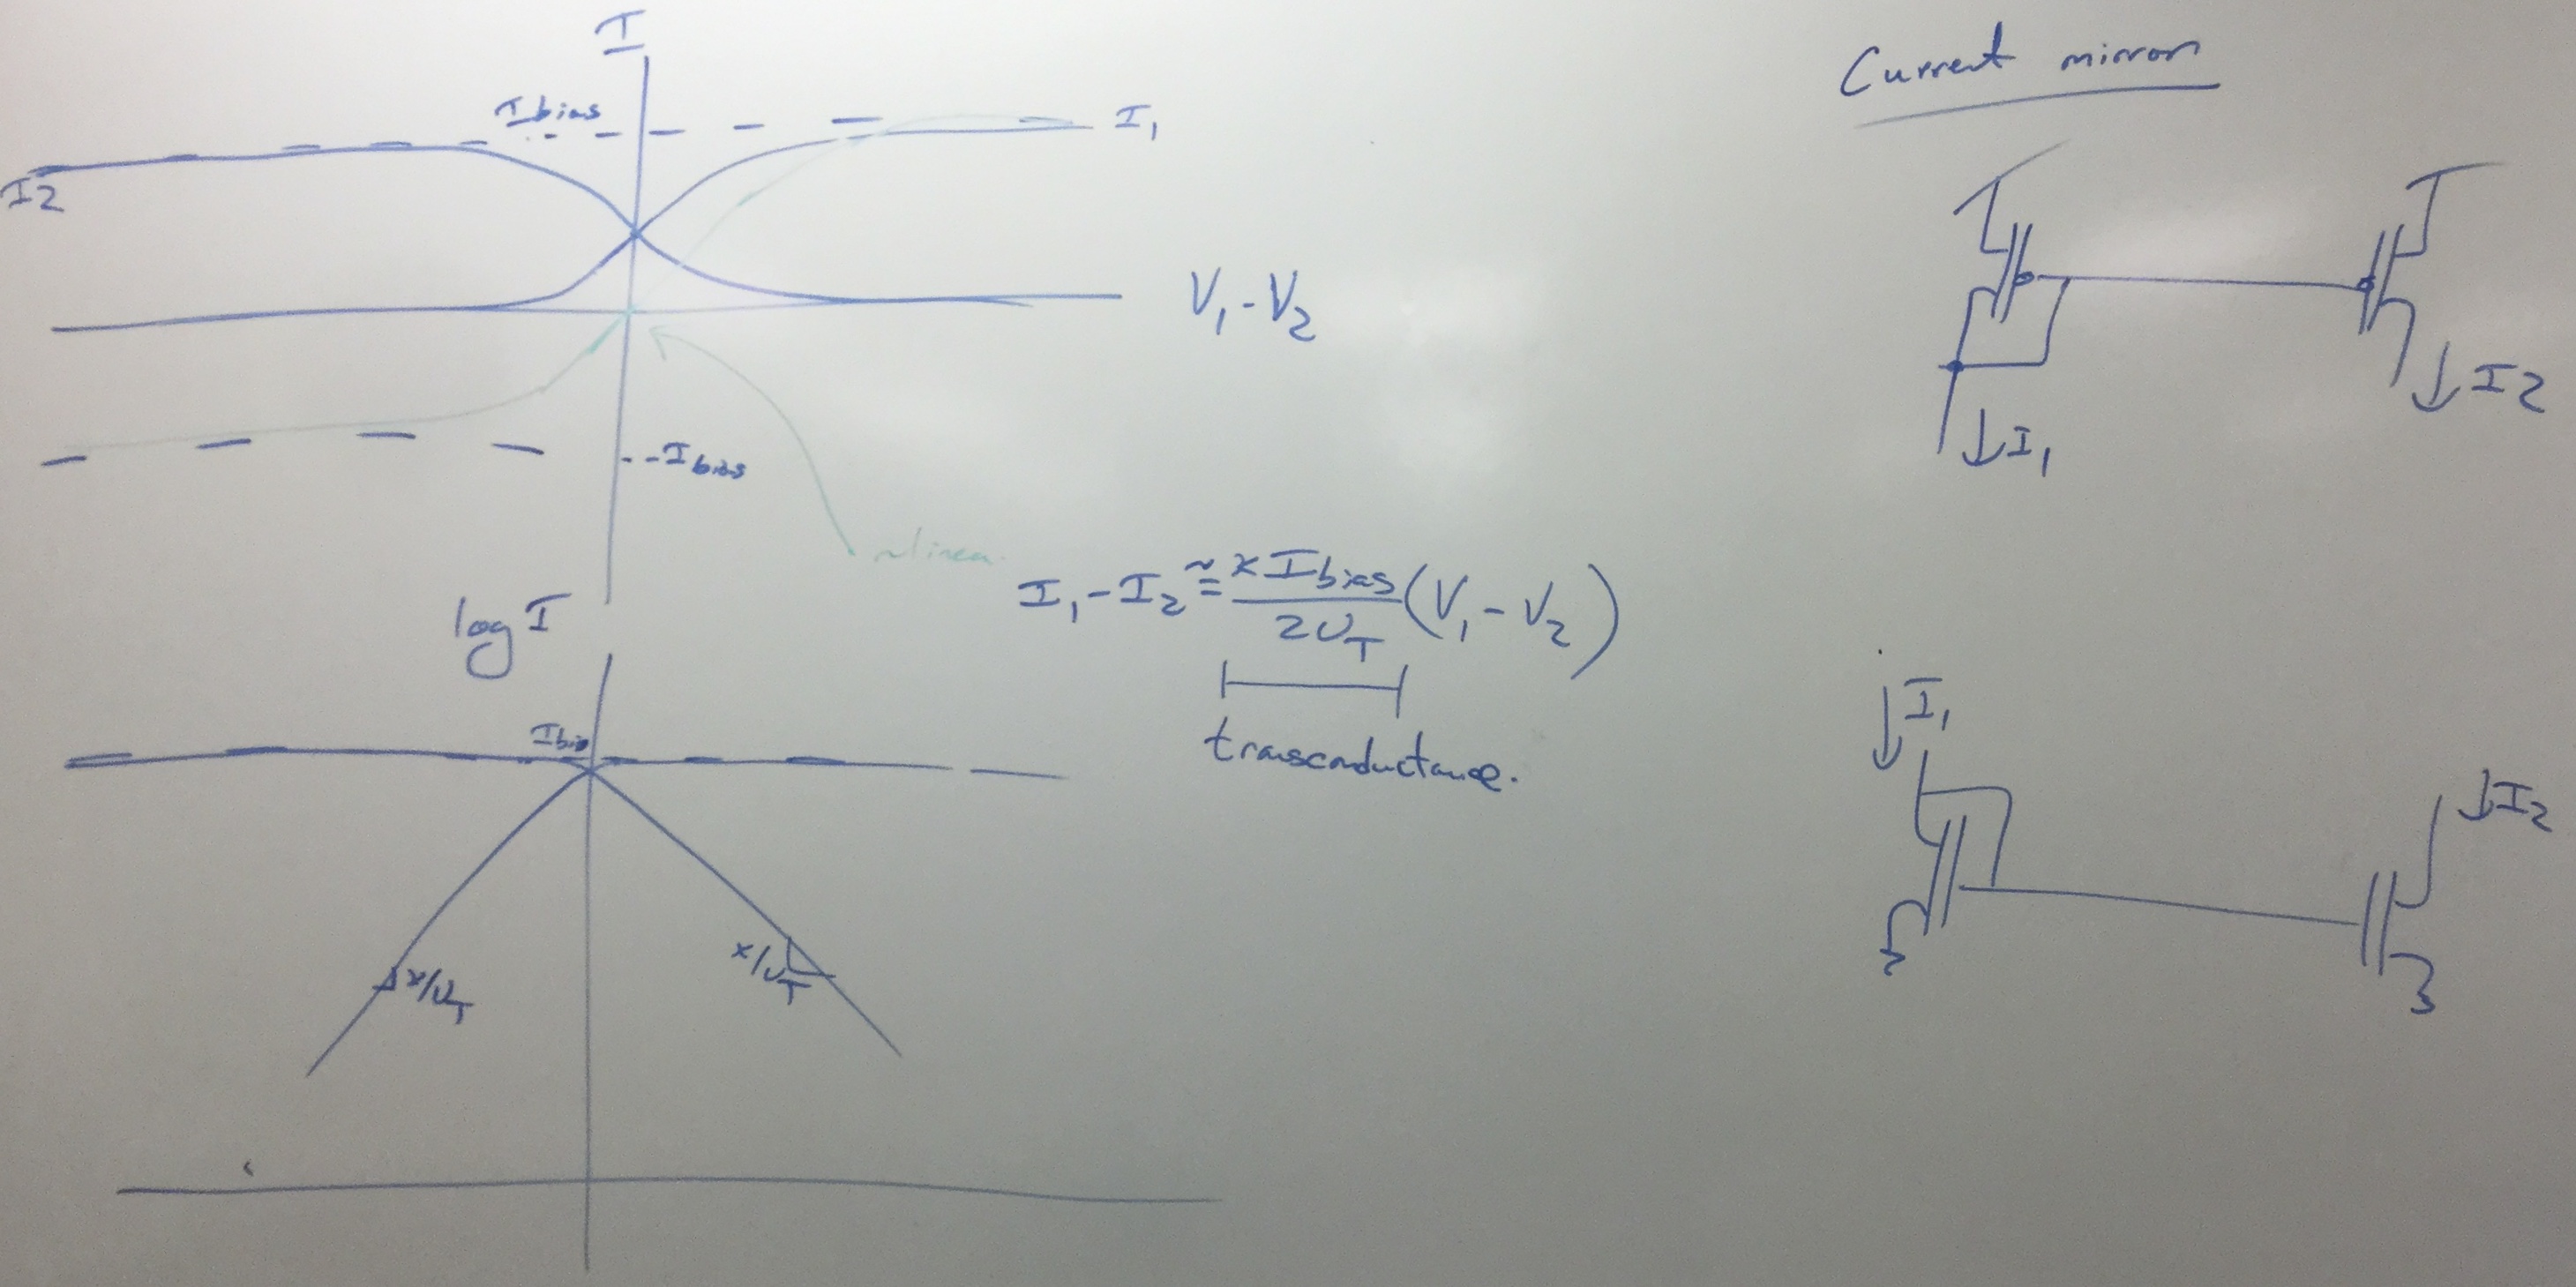 I
Ibias
I₁
I2
V₁-V₂
-Ibias
~linear
I₁-I₂ ≅ κIbias/2U_T (V₁-V₂)
transconductance.
log I
Ibias
κ/U_T
κ/U_T
Current mirror
↓I₁
↓I2
↓I₁
↓I2